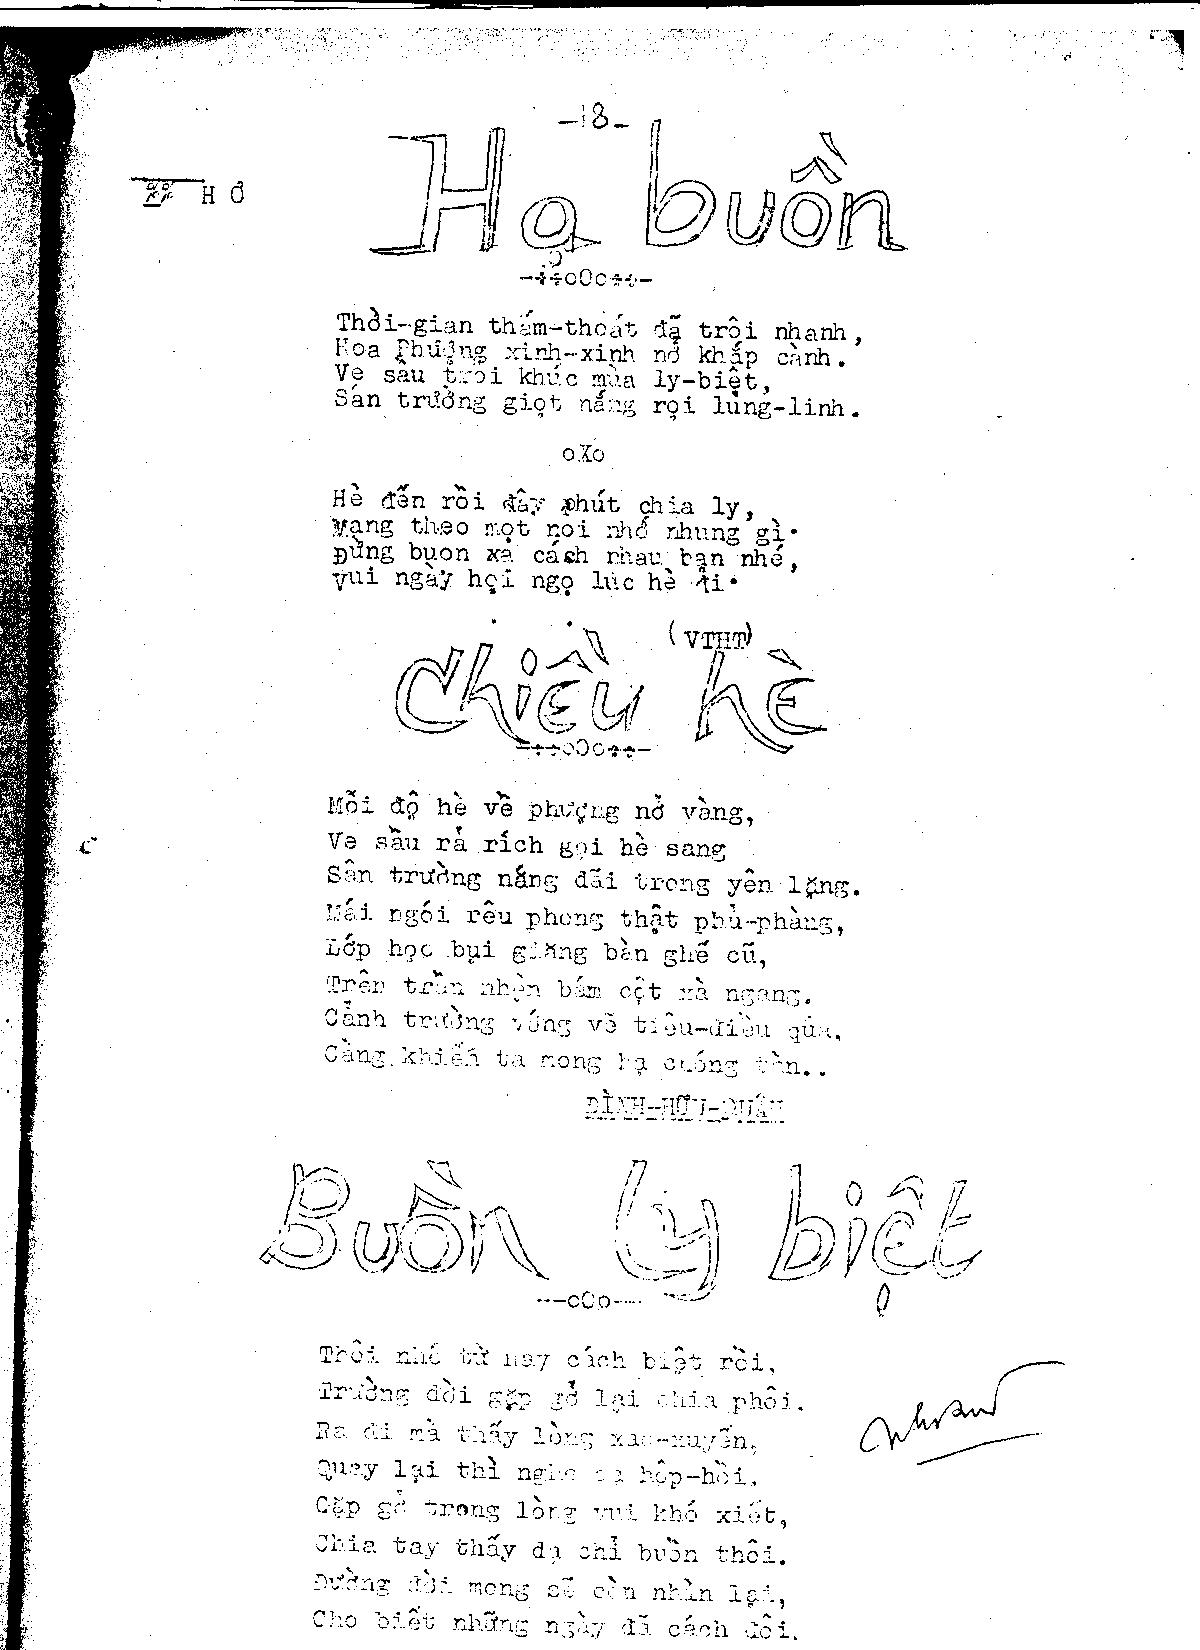 -18-
Hạ buồn
HƠ
-++oOo++-
Thời-gian thấm-thoát đã trôi nhanh,
Hoa Phượng xinh-xinh nở khắp cành.
Ve sầu trỗi khúc mùa ly-biệt,
Sân trường giọt nắng rọi lung-linh.
oXo
Hè đến rồi đây phút chia ly,
Mang theo một nỗi nhớ nhung gì.
Đừng buồn xa cách nhau bạn nhé,
Vui ngày hội ngọ lúc hè đi.
(VTHT)
Chiều hè
-++oOo++-
Mỗi độ hè về phượng nở vàng,
Ve sầu rả rích gọi hè sang
Sân trường nắng dãi trong yên lặng.
Mái ngói rêu phong thật phủ-phàng,
Lớp học bụi giăng bàn ghế cũ,
Trên trần nhện bám cột xà ngang.
Cảnh trường vắng vẽ tiêu-điều quá,
Càng khiến ta mong hạ chóng tàn..
ĐÌNH-HỮU-DUÂN
Buồn ly biệt
---oOo---
Thôi nhé từ nay cách biệt rồi,
Trường đời gặp gở lại chia phôi.
Ra đi mà thấy lòng xao-xuyến,
Quay lại thì nghe dạ hôp-hồi.
Gặp gở trong lòng vui khó xiết,
Chia tay thấy dạ chỉ buồn thôi.
Đường đời mong sẽ còn nhìn lại,
Cho biết những ngày đã cách đôi.